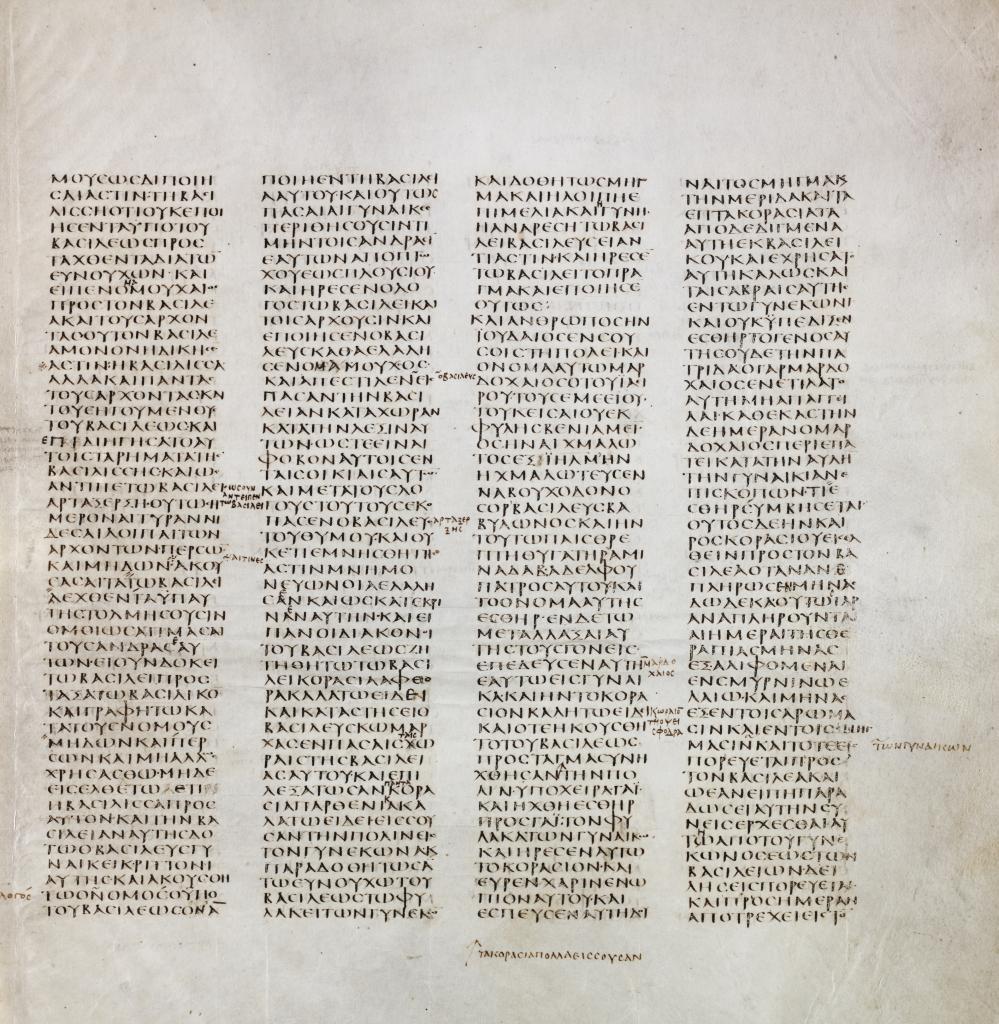 ΜΟΥϹΩϹΔΙΠΟΙΗ
ϹΑΙΑϹΤΙΝΤΗΒΑϹΙ
ΛΙϹϹΗΟΤΙΟΥΚΕΠΟΙ
ΗϹΕΝΤΑΥΠΟΤΟΥ
ΒΑϹΙΛΕΩϹΠΡΟϹ
ΤΑΧΘΕΝΤΑΔΙΑΤΩ
ΕΥΝΟΥΧΩΝ·ΚΑΙ
ΕΙΠΕΝΟΜΟΥΧΑΙΟϹ
ΠΡΟϹΤΟΝΒΑϹΙΛΕ
ΑΚΑΙΤΟΥϹΑΡΧΟΝ
ΤΑϹΟΥΤΟΝΒΑϹΙΛΕ
ΑΜΟΝΟΝΗΔΙΚΗϹΕ
ΑϹΤΙΝΗΒΑϹΙΛΙϹϹΑ
ΑΛΛΑΚΑΙΠΑΝΤΑϹ
ΤΟΥϹΑΡΧΟΝΤΑϹΚΑΙ
ΤΟΥϹΗΓΟΥΜΕΝΟΥϹ
ΤΟΥΒΑϹΙΛΕΩϹΚΑΙ
ΓΑΡΔΙΗΓΗϹΑΤΟΑΥ
ΤΟΙϹΤΑΡΗΜΑΤΑΤΗϹ
ΒΑϹΙΛΙϹϹΗϹΚΑΙΩϹ
ΑΝΤΙΠΕΤΩΒΑϹΙΛΕΙ
ΑΡΤΑΞΕΡΞΗΟΥΤΩϹΗ
ΜΕΡΟΝΑΙΤΥΡΑΝΝΙ
ΔΕϹΑΙΛΟΙΠΑΙΤΩΝ
ΑΡΧΟΝΤΩΝΠΕΡϹΩ
ΚΑΙΜΗΔΩΝΑΚΟΥ
ϹΑϹΑΙΤΑΤΩΒΑϹΙΛΕΙ
ΛΕΧΘΕΝΤΑΥΠΑΥ
ΤΗϹΤΟΛΜΗϹΟΥϹΙΝ
ΟΜΟΙΩϹΑΤΙΜΑϹΑΙ
ΤΟΥϹΑΝΔΡΑϹΑΥ
ΤΩΝ·ΕΙΟΥΝΔΟΚΕΙ
ΤΩΒΑϹΙΛΕΙΠΡΟϹ
ΤΑΞΑΤΩΒΑϹΙΛΙΚΟ
ΚΑΙΓΡΑΦΗΤΩΚΑ
ΤΑΤΟΥϹΝΟΜΟΥϹ
ΜΗΔΩΝΚΑΙΠΕΡ
ϹΩΝΚΑΙΜΗΑΛΛΩϹ
ΧΡΗϹΑϹΘΩΜΗΔΕ
ΕΙϹΕΛΘΕΤΩΕΤΙ
ΗΒΑϹΙΛΙϹϹΑΠΡΟϹ
ΑΥΤΟΝΚΑΙΤΗΝΒΑ
ϹΙΛΕΙΑΝΑΥΤΗϹΔΟ
ΤΩΟΒΑϹΙΛΕΥϹΓΥ
ΝΑΙΚΕΙΚΡΙΤΤΟΝΙ
ΑΥΤΗϹΚΑΙΑΚΟΥϹΘΗ
ΤΩΟΝΟΜΟϹΟΥΠΟ
ΤΟΥΒΑϹΙΛΕΩϹΟΝΑ
ΠΟΙΗΕΝΤΗΒΑϹΙΛΕΙ
ΑΑΥΤΟΥΚΑΙΟΥΤΩϹ
ΠΑϹΑΙΑΙΓΥΝΑΙΚΕϹ
ΠΕΡΙΘΗϹΟΥϹΙΝΤΙ
ΜΗΝΤΟΙϹΑΝΔΡΑϹΙ
ΕΑΥΤΩΝΑΠΟΠΤΩ
ΧΟΥΕΩϹΠΛΟΥϹΙΟΥ
ΚΑΙΗΡΕϹΕΝΟΛΟ
ΓΟϹΤΩΒΑϹΙΛΕΙΚΑΙ
ΤΟΙϹΑΡΧΟΥϹΙΝΚΑΙ
ΕΠΟΙΗϹΕΝΟΒΑϹΙ
ΛΕΥϹΚΑΘΑΕΛΑΛΗ
ϹΕΝΟΜΑΜΟΥΧΟϹ
ΚΑΙΑΠΕϹΤΙΛΕΝΕΙϹ
ΠΑϹΑΝΤΗΝΒΑϹΙ
ΛΕΙΑΝΚΑΤΑΧΩΡΑΝ
ΚΑΤΑΤΗΝΛΕΞΙΝΑΥ
ΤΩΝΩϹΤΕΕΙΝΑΙ
ΦΟΒΟΝΑΥΤΟΙϹΕΝ
ΤΑΙϹΟΙΚΙΑΙϹΑΥΤΩ
ΚΑΙΜΕΤΑΤΟΥϹΛΟ
ΓΟΥϹΤΟΥΤΟΥϹΕΚΟ
ΠΑϹΕΝΟΒΑϹΙΛΕΥϹ
ΤΟΥΘΥΜΟΥΚΑΙΟΥ
ΚΕΤΙΕΜΝΗϹΘΗΤΗϹ
ΑϹΤΙΝΜΝΗΜΟ
ΝΕΥΩΝΟΙΑΕΛΑΛΗ
ϹΕΝΚΑΙΩϹΚΑΤΕΚΡΙ
ΝΑΝΑΥΤΗΝ·ΚΑΙΕΙ
ΠΑΝΟΙΔΙΑΚΟΝΟΙ
ΤΟΥΒΑϹΙΛΕΩϹΖΗ
ΤΗΘΗΤΩΤΩΒΑϹΙ
ΛΕΙΚΟΡΑϹΙΑΑΦΘΟ
ΡΑΚΑΛΑΤΩΕΙΔΕΙ
ΚΑΙΚΑΤΑϹΤΗϹΕΙΟ
ΒΑϹΙΛΕΥϹΚΩΜΑΡ
ΧΑϹΕΝΠΑϹΑΙϹΧΩ
ΡΑΙϹΤΗϹΒΑϹΙΛΕΙ
ΑϹΑΥΤΟΥΚΑΙΕΠΙ
ΛΕΞΑΤΩϹΑΝΚΟΡΑ
ϹΙΑΠΑΡΘΕΝΙΚΑΚΑ
ΛΑΤΩΕΙΔΕΙΕΙϹϹΟΥ
ϹΑΝΤΗΝΠΟΛΙΝΕΙϹ
ΤΟΝΓΥΝΕΚΩΝΑΚΑΙ
ΠΑΡΑΔΟΘΗΤΩϹΑ
ΤΩΕΥΝΟΥΧΩΤΟΥ
ΒΑϹΙΛΕΩϹΤΩΦΥ
ΛΑΚΕΙΤΩΝΓΥΝΕΚΩ
ΚΑΙΔΟΘΗΤΩϹΜΗΓ
ΜΑΚΑΙΗΛΟΙΠΗΕ
ΠΙΜΕΛΙΑΚΑΙΓΥΝΗ
ΗΑΝΑΡΕϹΗΤΩΒΑϹΙ
ΛΕΙΒΑϹΙΛΕΥϹΕΙΑΝ
ΤΙΑϹΤΙΝ·ΚΑΙΗΡΕϹΕ
ΤΩΒΑϹΙΛΕΙΤΟΠΡΑ
ΓΜΑΚΑΙΕΠΟΙΗϹΕ
ΟΥΤΩϹ:
ΚΑΙΑΝΘΡΩΠΟϹΗΝ
ΙΟΥΔΑΙΟϹΕΝϹΟΥ
ϹΟΙϹΤΗΠΟΛΕΙΚΑΙ
ΟΝΟΜΑΑΥΤΩΜΑΡ
ΔΟΧΑΙΟϹΟΤΟΥΙΑΕΙ
ΡΟΥ·ΤΟΥϹΕΜΕΕΙΟΥ·
ΤΟΥΚΕΙϹΑΙΟΥΕΚ
ΦΥΛΗϹΒΕΝΙΑΜΕΙ
ΟϹΗΝΑΙΧΜΑΛΩ
ΤΟϹΕΞΙΛΗΜΗΝ
ΗΧΜΑΛΩΤΕΥϹΕΝ
ΝΑΒΟΥΧΟΔΟΝΟ
ϹΟΡΒΑϹΙΛΕΥϹΒΑ
ΒΥΛΩΝΟϹΚΑΙΗΝ
ΤΟΥΤΩΠΑΙϹΘΡΕ
ΠΤΗΘΥΓΑΤΗΡΑΜΙ
ΝΑΔΑΒΑΔΕΛΦΟΥ
ΠΑΤΡΟϹΑΥΤΟΥΚΑΙ
ΤΟΟΝΟΜΑΑΥΤΗϹ
ΕϹΘΗΡ·ΕΝΔΕΤΩ
ΜΕΤΑΛΛΑΞΑΙΑΥ
ΤΗϹΤΟΥϹΓΟΝΕΙϹ·
ΕΠΕΔΕΥϹΕΝΑΥΤΗ
ΕΑΥΤΩΕΙϹΓΥΝΑΙ
ΚΑΚΑΙΗΝΤΟΚΟΡΑ
ϹΙΟΝΚΑΛΗΤΩΕΙΔΕΙ
ΚΑΙΟΤΕΗΚΟΥϹΘΗ
ΤΟΤΟΥΒΑϹΙΛΕΩϹ
ΠΡΟϹΤΑΓΜΑϹΥΝΗ
ΧΘΗϹΑΝΤΗΝΠΟ
ΛΙΝΥΠΟΧΕΙΡΑΓΑΙ
ΚΑΙΗΧΘΗΕϹΘΗΡ
ΠΡΟϹΓΑΙΤΟΝΦΥ
ΛΑΚΑΤΩΝΓΥΝΑΙΚΩ
ΚΑΙΗΡΕϹΕΝΑΥΤΩ
ΤΟΚΟΡΑϹΙΟΝΚΑΙ
ΕΥΡΕΝΧΑΡΙΝΕΝΩ
ΠΙΟΝΑΥΤΟΥΚΑΙ
ΕϹΠΕΥϹΕΝΑΥΤΗΔΙ
ΝΑΙΤΟϹΜΗΓΜΑΚΑΙ
ΤΗΝΜΕΡΙΔΑΚΑΙΤΑ
ΕΠΤΑΚΟΡΑϹΙΑΤΑ
ΑΠΟΔΕΔΙΓΜΕΝΑ
ΑΥΤΗΕΚΒΑϹΙΛΕΙ
ΚΟΥΚΑΙΕΧΡΗϹΑΤΟ
ΑΥΤΗΚΑΛΩϹΚΑΙ
ΤΑΙϹΑΒΡΑΙϹΑΥΤΗϹ
ΕΝΤΩΓΥΝΕΚΩΝΙ
ΚΑΙΟΥΚΥΠΕΔΙΞΕΝ
ΕϹΘΗΡΤΟΓΕΝΟϹΑΥ
ΤΗϹΟΥΔΕΤΗΝΠΑ
ΤΡΙΔΑΟΓΑΡΜΑΡΔΟ
ΧΑΙΟϹΕΝΕΤΙΛΑΤΟ
ΑΥΤΗΜΗΑΠΑΓΓΙ
ΛΑΙ·ΚΑΘΕΚΑϹΤΗΝ
ΔΕΗΜΕΡΑΝΟΜΑΡ
ΔΟΧΑΙΟϹΠΕΡΙΕΠΑ
ΤΕΙΚΑΤΑΤΗΝΑΥΛΗ
ΤΗΝΓΥΝΑΙΚΙΑΝΕ
ΠΙϹΚΟΠΩΝ·ΤΙΕ
ϹΘΗΡϹΥΜΒΗϹΕΤΑΙ
ΟΥΤΟϹΔΕΗΝΚΑΙ
ΡΟϹΚΟΡΑϹΙΟΥΕΙϹΕΛ
ΘΕΙΝΠΡΟϹΤΟΝΒΑ
ϹΙΛΕΑΟΤΑΝΑΝΑ
ΠΛΗΡΩϹΕΝΜΗΝΑ
ΔΩΔΕΚΑΟΥΤΩΓΑΡ
ΑΝΑΠΛΗΡΟΥΝΤΑΙ
ΑΙΗΜΕΡΑΙΤΗϹΘΕ
ΡΑΠΙΑϹΜΗΝΑϹ
ΕΞΑΛΙΦΟΜΕΝΑΙ
ΕΝϹΜΥΡΝΙΝΩΕ
ΛΑΙΩΚΑΙΜΗΝΑϹ
ΕΞΕΝΤΟΙϹΑΡΩΜΑ
ϹΙΝΚΑΙΕΝΤΟΙϹ
ΜΑϹΙΝΚΑΙΤΟΤΕΕΙϹ
ΠΟΡΕΥΕΤΑΙΠΡΟϹ
ΤΟΝΒΑϹΙΛΕΑΚΑΙ
ΩΕΑΝΕΙΠΗΠΑΡΑ
ΔΩϹΕΙΑΥΤΗΝϹΥ
ΝΕΙϹΕΡΧΕϹΘΑΙΑΥ
ΤΩΑΠΟΤΟΥΓΥΝΕ
ΚΩΝΟϹΕΩϹΤΩΝ
ΒΑϹΙΛΕΙΩΝ·ΔΕΙ
ΛΗϹΕΙϹΠΟΡΕΥΕΤΑΙ
ΚΑΙΠΡΟϹΗΜΕΡΑΝ
ΑΠΟΤΡΕΧΕΙΕΙϹΤΟ
ΟΒΑϹΙΛΕΥϹ
ΑΡΤΑΞΕΡ
ΞΗϹ
ΜΑΡΔΟ
ΧΑΙΟϹ
ϹΦΟΔΡΑ
ΤΩΝΓΥΝΑΙΚΩΝ
ΛΟΓΟϹ
ΤΑΚΟΡΑϹΙΑΠΟΛΛΑΕΙϹϹΟΥϹΑΝ